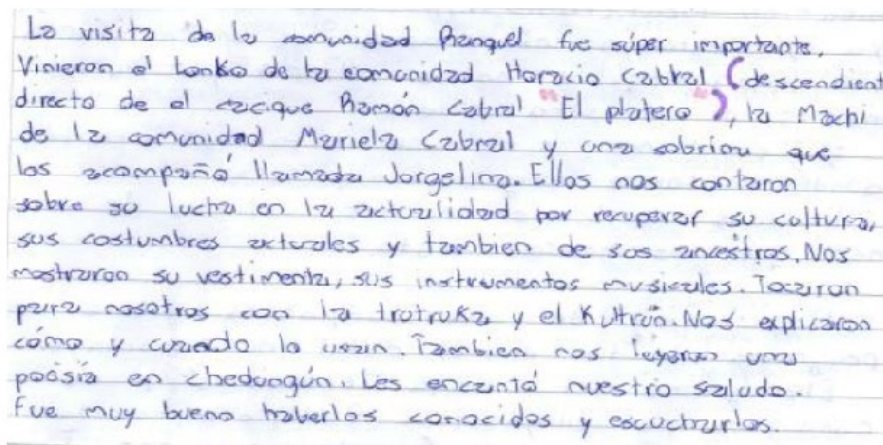 La visita de la comunidad Ranquel fue súper importante.
Vinieron el Lonko de la comunidad Horacio Cabral (descendient
directo de el cacique Ramón Cabral "El platero"), la Machi
de la comunidad Mariela Cabral y una sobrina que
los acompañó llamada Jorgelina. Ellos nos contaron
sobre su lucha en la actualidad por recuperar su cultura,
sus costumbres actuales y tambien de sus ancestros. Nos
mostraron su vestimenta, sus instrumentos musicales. Tocaron
para nosotros con la trutruka y el Kultrún. Nos explicaron
cómo y cuando lo usan. Tambien nos leyeron una
poesía en chedungún. Les encantó nuestro saludo.
Fue muy bueno haberlos conocidos y escucharlos.